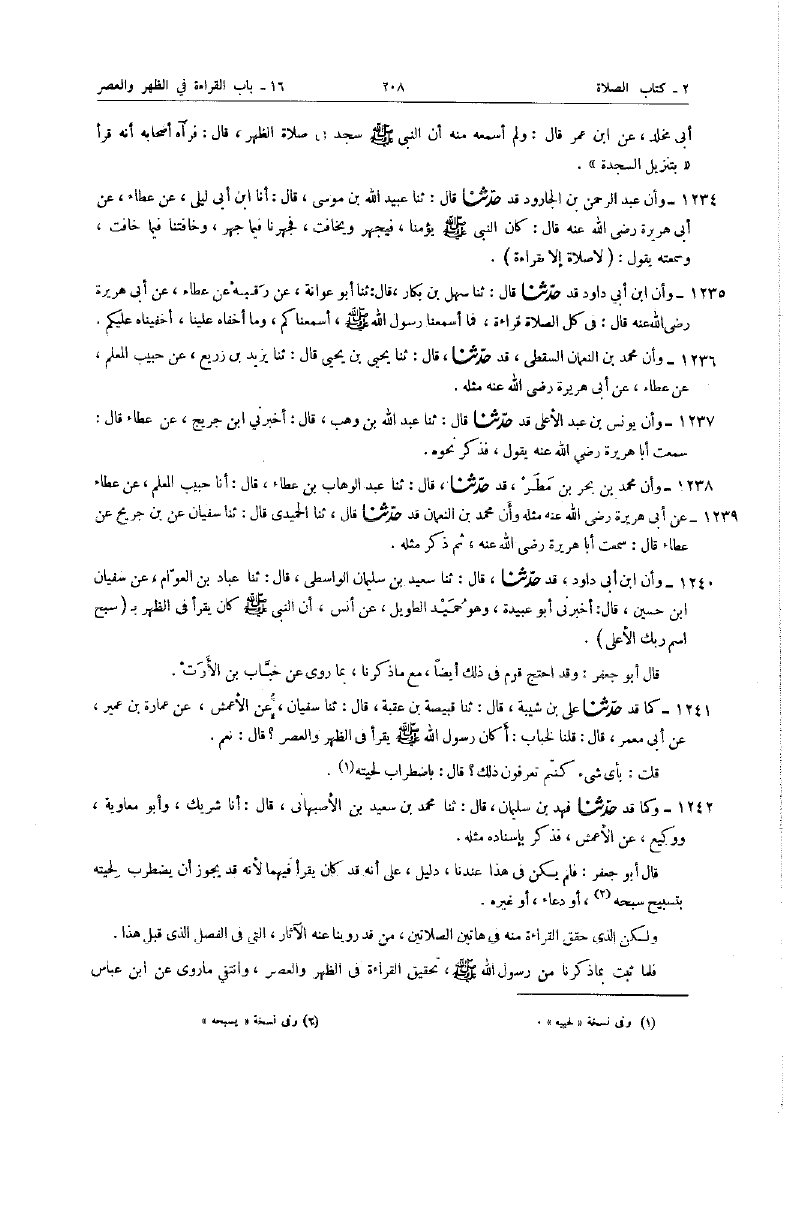 ٢ ـ كتاب الصلاة ٢٠٨ ١٦ ـ باب القراءة في الظهر والعصر
أبى مخلد ، عن ابن عمر قال : ولم أسمعه منه أن النبي ﷺ سجد فى صلاة الظهر ، قال : فرآه أصحابه أنه قرأ
« بتنزيل السجدة » .
١٢٣٤ ـ وأن عبد الرحمن بن الجارود قد حدّثنا قال : ثنا عبيد الله بن موسى ، قال : أنا ابن أبى ليلى ، عن عطاء ، عن
أبى هريرة رضى الله عنه قال : كان النبى ﷺ يؤمنا ، فيجهر ويخافت ، فجهرنا فيما جهر ، وخافتنا فيما خافت ،
وسمعته يقول : ( لاصلاة إلا بقراءة ) .
١٢٣٥ ـ وأن ابن أبي داود قد حدّثنا قال : ثنا سهل بن بكار ،قال: ثنا أبو عوانة ، عن رَقَبَةَ عن عطاء ، عن أبى هريرة
رضى الله عنه قال : فى كل الصلاة قراءة ، فما أسمعنا رسول الله ﷺ ، أسمعناكم ، وما أخفاه علينا ، أخفيناه عليكم .
١٢٣٦ ـ وأن محمد بن النعمان السقطى ، قد حدّثنا ، قال : ثنا يحيى بن يحيى قال : ثنا يزيد بن زريع ، عن حبيب المعلم ،
عن عطاء ، عن أبى هريرة رضى الله عنه مثله .
١٢٣٧ ـ وأن يونس بن عبد الأعلى قد حدّثنا قال : ثنا عبد الله بن وهب ، قال : أخبرني ابن جريج ، عن عطاء قال :
سمعت أبا هريرة رضي الله عنه يقول ، فذكر نحوه .
١٢٣٨ ـ وأن محمد بن بحر بن مَطَرْ ، قد حدّثنا ، قال : ثنا عبد الوهاب بن عطاء ، قال : أنا حبيب المعلم ، عن عطاء
١٢٣٩ ـ عن أبى هريرة رضى الله عنه مثله وأن محمد بن النعمان قد حدّثنا قال ، ثنا الحميدى قال : ثنا سفيان عن بن جريج عن
عطاء قال : سمعت أبا هريرة رضى الله عنه ، ثم ذكر مثله .
١٢٤٠ ـ وأن ابن أبى داود ، قد حدّثنا ، قال : ثنا سعيد بن سليمان الواسطى ، قال : ثنا عباد بن العوّام ، عن سفيان
ابن حسين ، قال: أخبرنى أبو عبيدة ، وهو حُمَيْد الطويل ، عن أنس ، أن النبى ﷺ كان يقرأ فى الظهر بـ ( سبح
اسم ربك الأعلى ) .
قال أبو جعفر : وقد احتج قوم فى ذلك أيضاً ، مع ماذكرنا ، بما روى عن خبَّاب بن الأَرَتّ .
١٢٤١ ـ كما قد حدّثنا على بن شيبة ، قال : ثنا قبيصة بن عقبة ، قال : ثنا سفيان ، عن الأعمش ، عن عمارة بن عمير ،
عن أبي معمر ، قال : قلنا لخباب : أكان رسول الله ﷺ يقرأ فى الظهر والعصر ؟ قال : نعم .
قلت : بأى شىء كنتم تعرفون ذلك ؟ قال : باضطراب لحيته (١) .
١٢٤٢ ـ وكما قد حدّثنا فهد بن سليمان ، قال : ثنا محمد بن سعيد بن الأصبهانى ، قال : أنا شريك ، وأبو معاوية ،
ووكيع ، عن الأعمش ، فذكر بإسناده مثله .
قال أبو جعفر : فلم يكن فى هذا عندنا ، دليل ، على أنه قد كان يقرأ فيهما لأنه قد يجوز أن يضطرب لحيته
بتسبيح سبحه (٢) ، أو دعاء ، أو غيره .
ولكن الذى حقق القراءة منه فى هاتين الصلاتين ، من قد روينا عنه الآثار ، التى فى الفصل الذى قبل هذا .
فلما ثبت بماذكرنا من رسول الله ﷺ ، تحقيق القراءة فى الظهر والعصر ، وانتفى ماروى عن ابن عباس
(١) وفى نسخة « لحييه » . (٢) وفى نسخة « يسبحه »